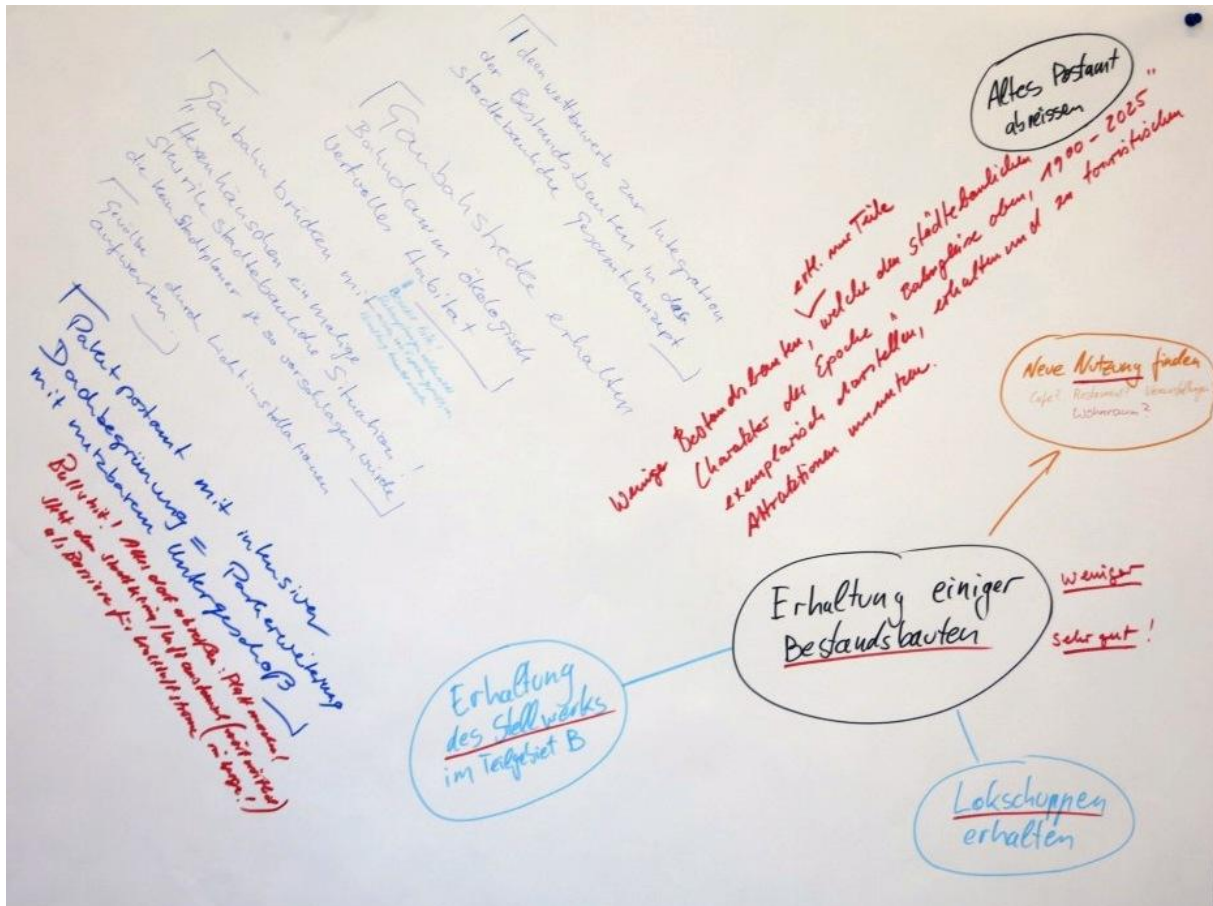 Altes Postamt
abreissen
Ideenwettbewerb zur Integration
der Bestandsbauten in das
städtebauliche Gesamtkonzept
Gäubahstrecke erhalten
Bahndamm ökologisch
wertvolles Habitat
Gäubahnbrücken mit
"Hexenhäuschen einmalige
skurile städtebauliche Situation!
die kein Stadtplaner je so vorschlagen würde
Gewölbe durch Lichtinstallationen
aufwerten!
Paketpostamt mit intensiver
Dachbegrünung = Parkerweiterung
mit nutzbarem Untergeschoß
Bullshit! Alles dort abreißen! Platt machen!
Steht dem Stadtklima/Luftaustausch
als Barriere für Kaltluftströme im Wege!)
evtl. nur Teile
Weniger Bestandsbauten, welche den städtebaulichen
Charakter der Epoche "Bahngleise oben, 1900-2025"
exemplarisch darstellen, erhalten und zu touristischen
Attraktionen umnutzen.
Neue Nutzung finden
Café? Restaurant? Veranstaltungen
Wohnraum?
Erhaltung einiger
Bestandsbauten
weniger
sehr gut!
Erhaltung
des Stellwerks
im Teilgebiet B
Lokschuppen
erhalten